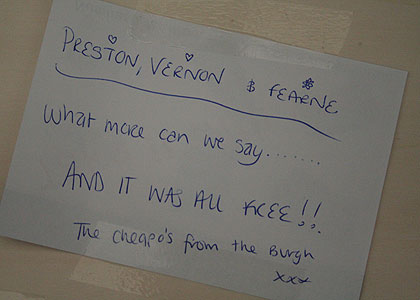 PRESTON, VERNON & FEARNE
What more can we say.......
AND IT WAS ALL FREE!!
The cheapo's from the Burgh
xxx